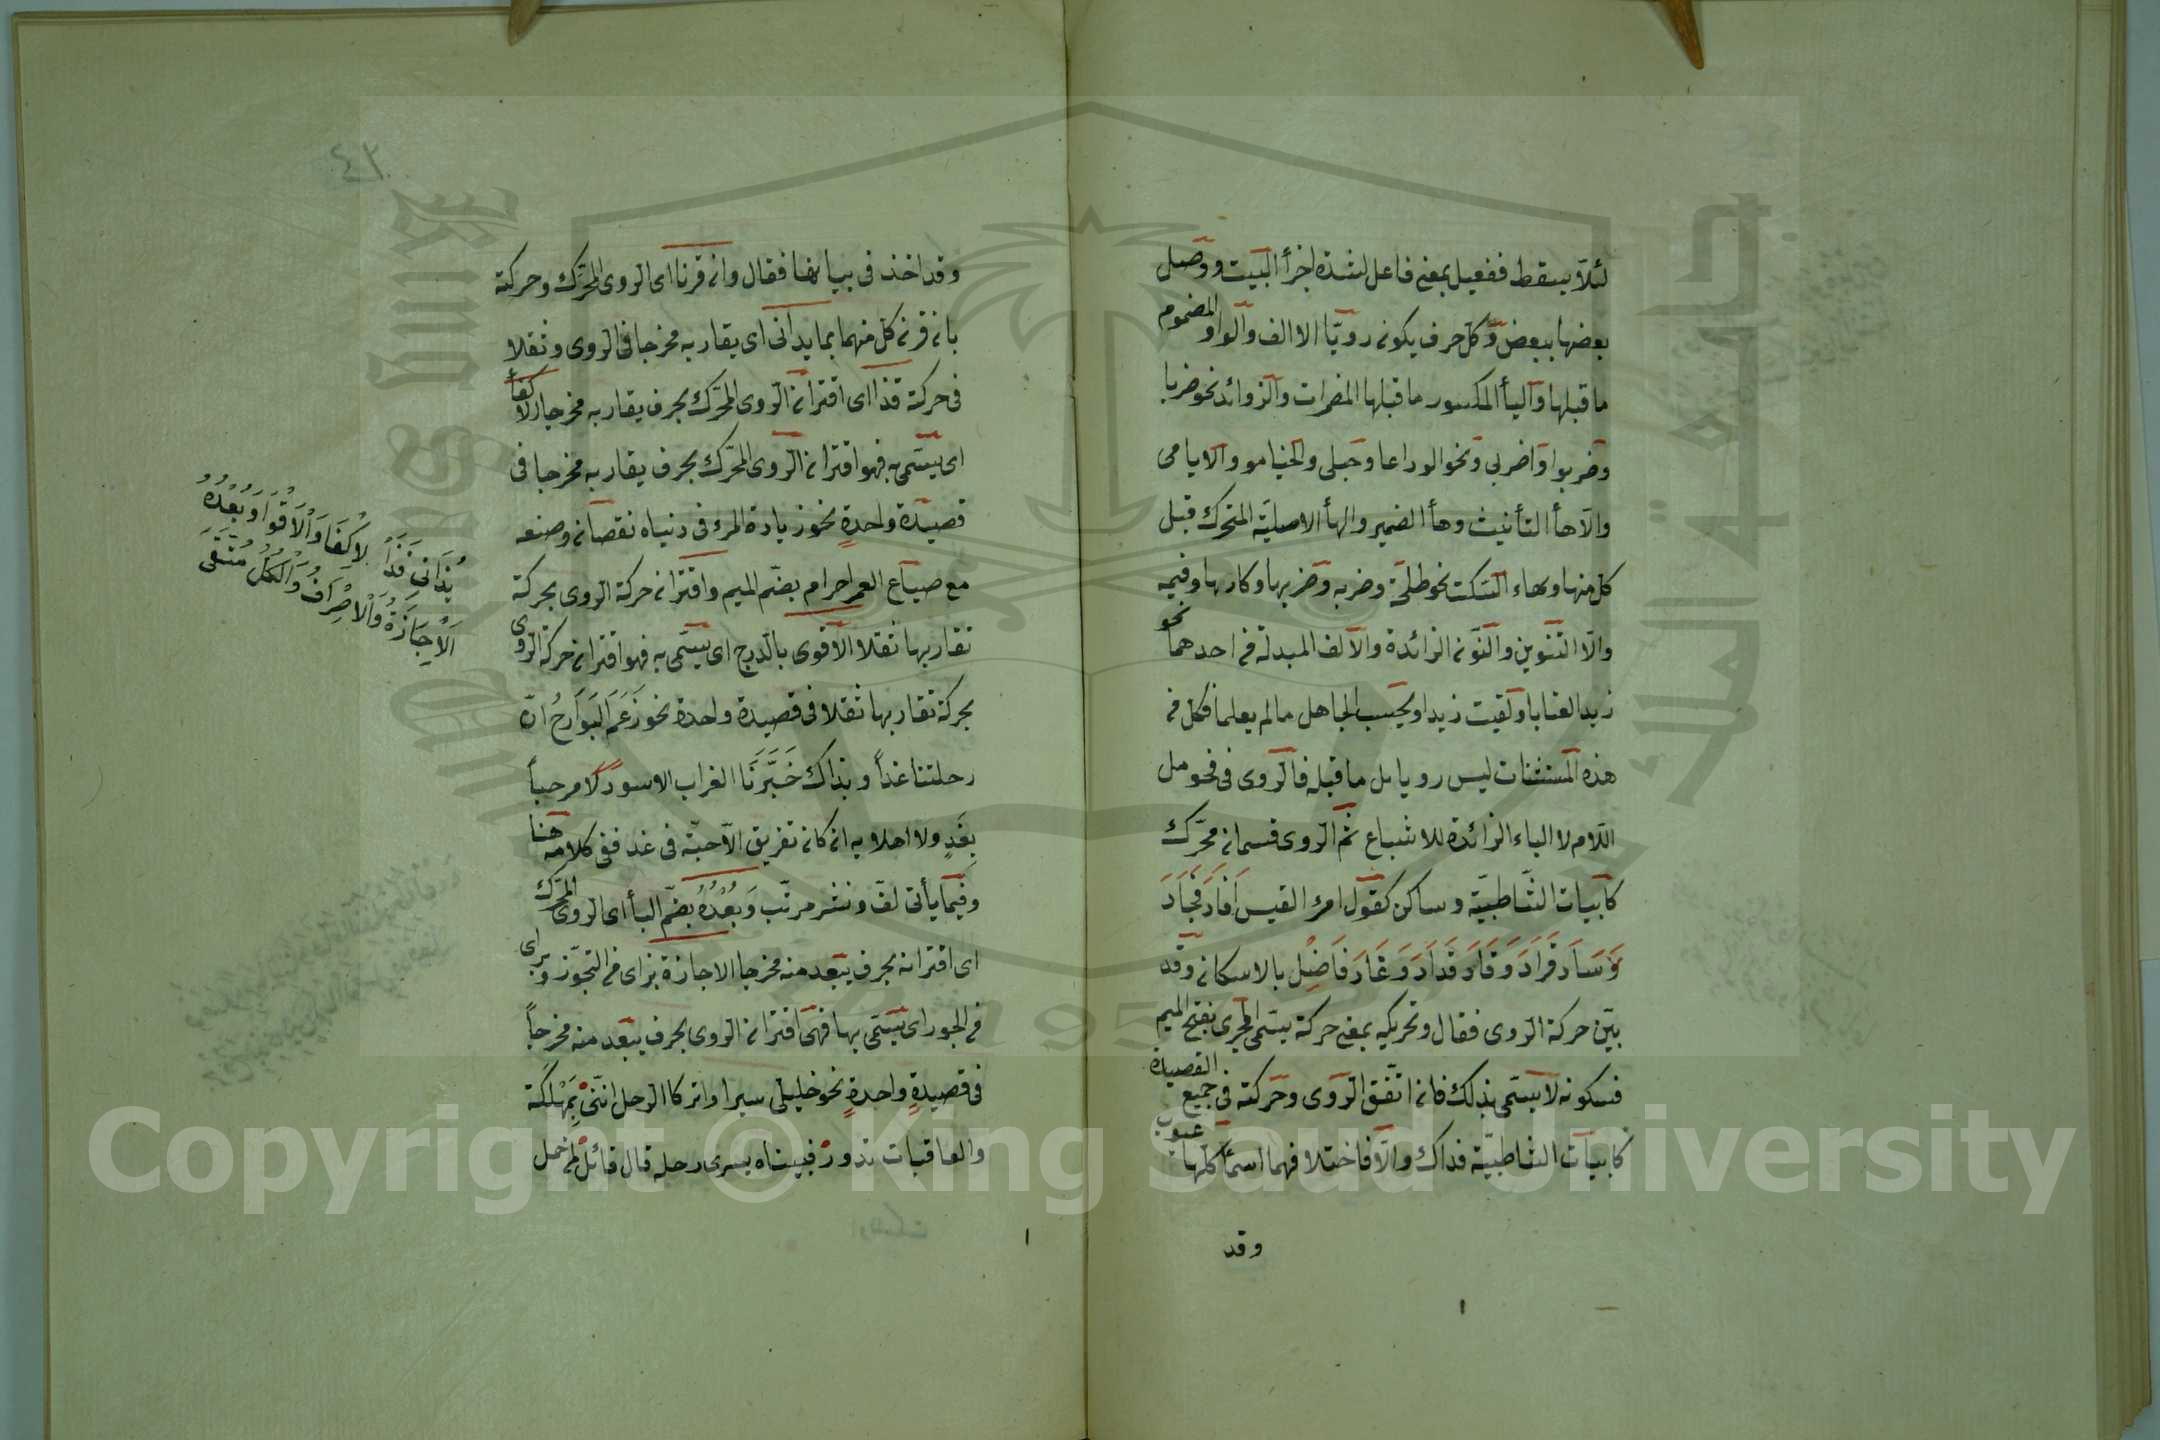 لئلا يسقط ففعيل بمعنى فاعل لشدة اجزأ البيت ووصل
بعضها ببعض وكل حرف يكون رويّا الا الف والواو المضموم
ما قبلها واليأ المكسور ما قبلها المضمرات والزوائد نحو ضربا
وضربوا واضربي ونحو الوداعا وحبلى والخيامو والايامى
والا هأ التأنيث وهأ الضمير والهأ الاصلية المتحرك قبل
كل منها وهاء السكت نحو طلحة وضربه وضربها وكارها وفيمه
والا التنوين والنون الزائدة والالف المبدلة من احدهما نحو
زيدا لعتابا ولقيت زيدا ويحسب الجاهل ما لم يعلما فكل من
هذه المستثنات ليس رويا بل ما قبله فالروى في فحومل
اللام لا الياء الزائدة للاشباع ثم الروى قسمان محرّك
كابيات الشاطبيّة وساكن كقول امرء القيس افاد فجاد
وساد فزاد وقاد فذاد وعاد فافضل بالاسكان وقد
بيّن حركة الروى فقال وتحريكه بمعنى حركة يسمى المجرى بفتح الميم
فسكونه لا يسمّى بذلك فان اتّفق الروى وحركته في جميع القصيدة
كابيات الشاطبيّة فذاك والّا فاختلافهما اسمأ كلها عيوب
وقد
٤٢
وقد اخذ في بيانها فقال وان قرنا اى الروى المحرّك وحركته
بان قرن كل منهما بما يدانى اى يقاربه مخرجا في الروى وثقلا
في حركة فذا اى اقتران الروى المحرّك بحرف يقاربه مخرجا الاكفأ
اى يسمّى به فهو اقتران الروى المحرّك بحرف يقاربه مخرجا في
قصيدة واحدة نحو زيادة المرء في دنياه نقصان وصنعه
مع ضياع العمر احرام بضمّ الميم واقتران حركة الروى بحركة
تقاربها ثقلا الاقوى بالدرج اى يسمّى به فهو اقتران حركة الروى
بحركة تقاربها ثقلا في قصيدة واحدة نحو زَعَمَ البَوَارحُ انّ
رحلتنا غداً وبذاك خَبَّرَنَا الغراب الاسود لا مرحباً
بِغَدٍ ولا اهلا به ان كان تفريق الاحبّة في غد ففى كلامه هنا
وفيما يأتى لفّ ونشر مرتّب وَبُعْدُهُ بضمّ البأ اى الروى المحرّك
اى اقترانه بحرف يبعد منه مخرجا الاجازة بزاى من التجوّز وبراى
من الجور اى يسمّى بها فهى اقتران الروى بحرف يبعد منه مخرجاً
في قصيدةٍ واحدةٍ نحو خليلى سيرا واتركا الرحل انّنى بِمَهْلَكَة
والعاقبات تدورُ فبيناه يسرى رحله قال قائل لمن جمل
يُدَانِي فَذَا الاِكْفَا وَالاَقْوَا وَبُعْدُهُ
الاِجَازَةُ وَالاِصْرَافُ وَالكُلُّ مُتَّقَى